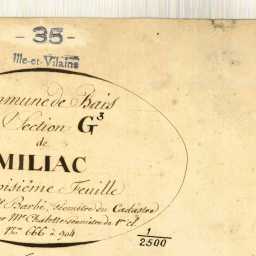 - 35 -
Ille-et-Vilaine
mmune de Bais
Section G³
de
MILIAC
oisième Feuille
Barbé, Géomètre du Cadastre
Mr Chalotte géomètre de 1re cl
Nos 666 à 904
1/2500